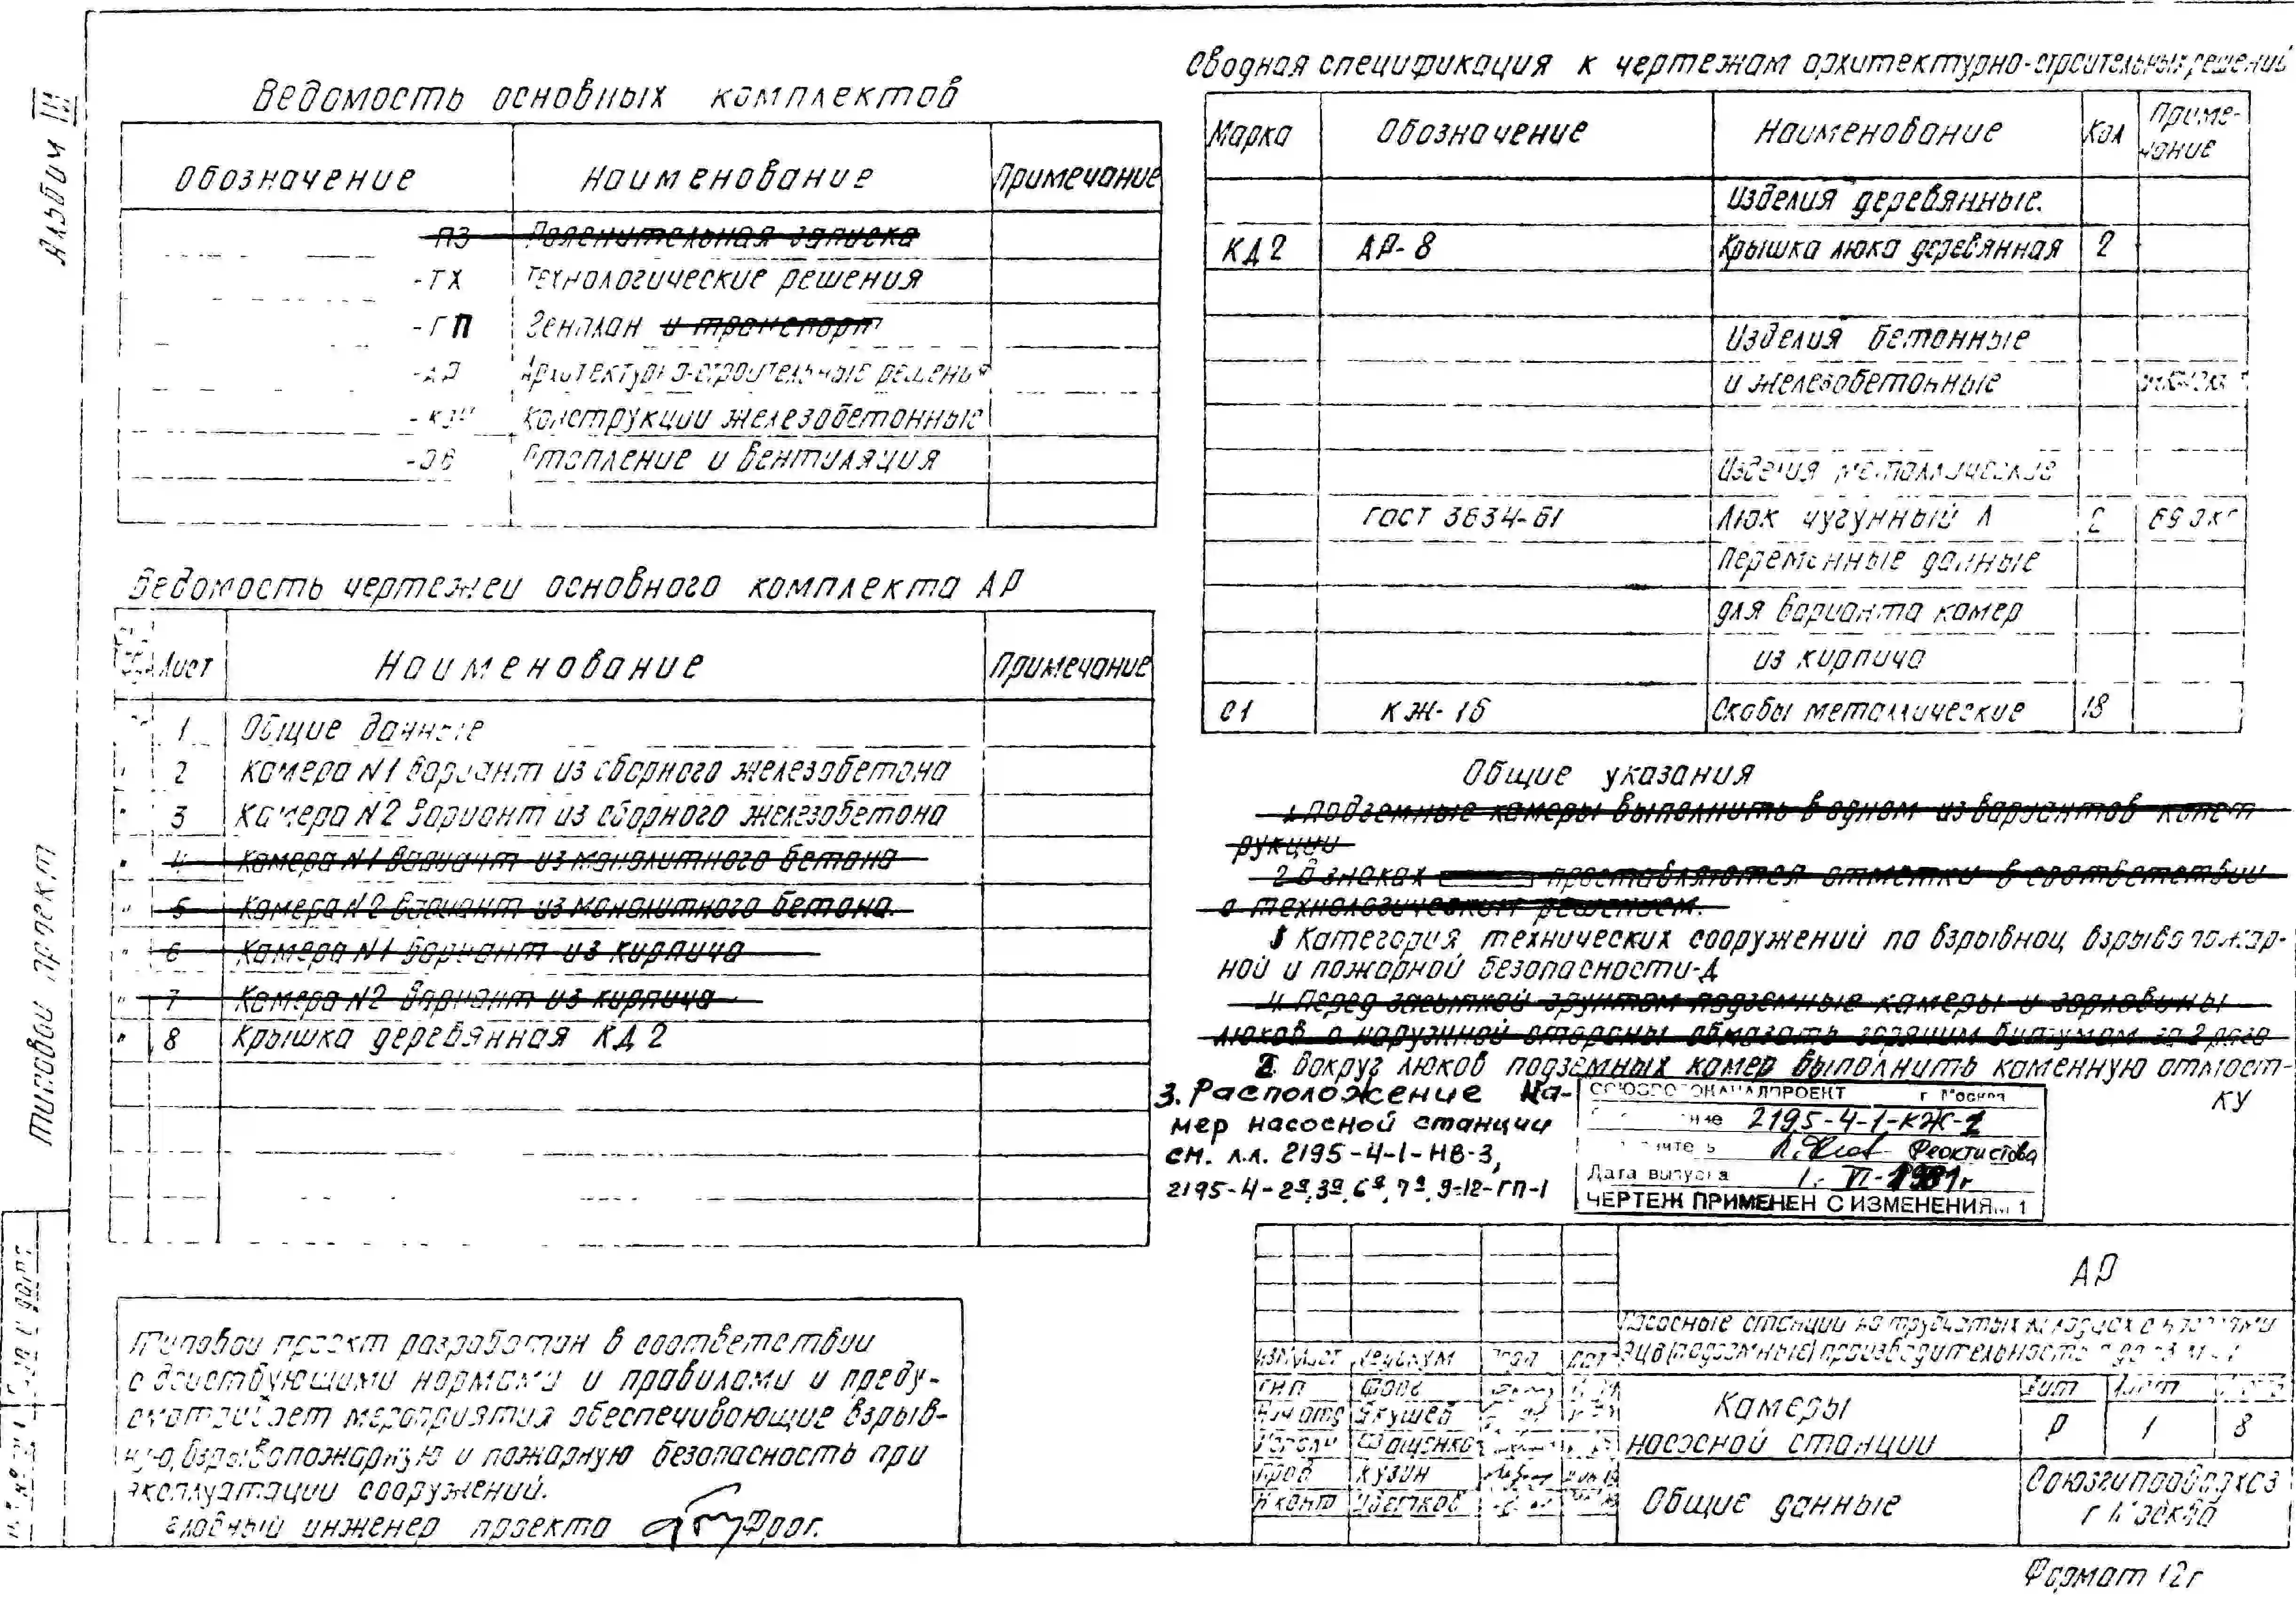 Альбом III
Типовой проект
Ведомость основных комплектов
Обозначение Наименование Примечание
-ПЗ Пояснительная записка
-ТХ Технологические решения
-ГП Генплан и транспорт
-АР Архитектурно-строительные решения
-КЖ Конструкции железобетонные
-ОВ Отопление и вентиляция
Ведомость чертежей основного комплекта АР
Лист Наименование Примечание
1 Общие данные
2 Камера N1 вариант из сборного железобетона
3 Камера N2 вариант из сборного железобетона
4 Камера N1 вариант из монолитного бетона
5 Камера N2 вариант из монолитного бетона.
6 Камера N1 вариант из кирпича
7 Камера N2 вариант из кирпича
8 Крышка деревянная КД2
Типовой проект разработан в соответствии
с действующими нормами и правилами и преду-
сматривает мероприятия обеспечивающие взрыв-
ную, взрывопожарную и пожарную безопасность при
эксплуатации сооружений.
Главный инженер проекта
Сводная спецификация к чертежам архитектурно-строительных решений
Марка Обозначение Наименование Кол Приме-
чание
Изделия деревянные.
КД2 АР-8 Крышка люка деревянная 2
Изделия бетонные
и железобетонные
Изделия металлические
ГОСТ 3634-61 Люк чугунный Л 2
Переменные данные
для варианта камер
из кирпича
С1 КЖ-16 Скобы металлические 18
Общие указания
1 Подземные камеры выполнить в одном из вариантов конст
рукции
2 В знаках проставляются отметки в соответствии
с технологическим решением.
Категория технических сооружений по взрывной, взрывопожар-
ной и пожарной безопасности-Д
4. Перед засыпкой грунтом подземные камеры и горловины
люков с наружной стороны обмазать горячим битумом за 2 раза
2. Вокруг люков подземных камер выполнить каменную отмост-
ку
3. Расположение ка-
мер насосной станции
см. л.л. 2195-4-1-НВ-3,
2195-4-2а,3а,6а,7а,9-12-ГП-1
СОЮЗВОДОКАНАЛПРОЕКТ г. Москва
2195-4-1-КЖ-1
Феоктистова
Дата выпуска 1.-VI-1981г
ЧЕРТЕЖ ПРИМЕНЕН С ИЗМЕНЕНИЯМИ
АР
Насосные станции на трубчатых колодцах с насосами
ЭЦВ (подземные) производительностью
ГИП
Якушев
Фащенко
Пров Кузин
Н контр Цветков
Камеры
насосной станции
Лит Лист
Р 1 8
Общие данные
Союзгипроводхоз
г Москва
Формат 12г